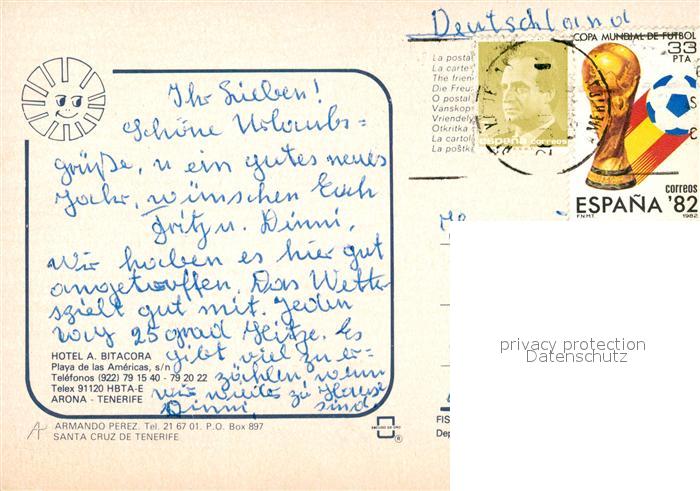 Deutschland
COPA MUNDIAL DE FUTBOL
33
PTA
correos
ESPAÑA '82
F.N.M.T.
1982
españa correos
La postal
La carte
The frien
Die Freu
O postal
Vanskop
Vriendely
Otkritka
La cartol
La poštk
Ihr Lieben!
Schöne Urlaubs=
grüße, u ein gutes neues
Jahr, wünschen Euch
Fritz u. Dinni.
Wir haben es hier gut
angetroffen. Das Wetter
spielt gut mit. Jeden
Tag 25 grad Hitze. Es
gibt viel zu er=
zählen, wenn
wir wieder zu Hause
Dinni sind.
HOTEL A. BITACORA
Playa de las Américas, s/n
Teléfonos (922) 79 15 40 - 79 20 22
Telex 91120 HBTA-E
ARONA - TENERIFE
ARMANDO PEREZ. Tel. 21 67 01. P.O. Box 897
SANTA CRUZ DE TENERIFE
FIS
Dep
privacy protection
Datenschutz